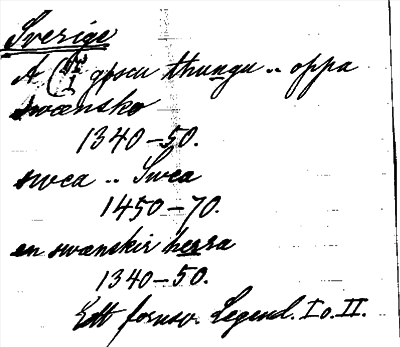 Sverige
A gpscu thungu .. oppa
swænsko
1340-50.
swea .. Swea
1450-70.
en swænskir herra
1340-50.
Ett fornsv. Legend. I o. II.